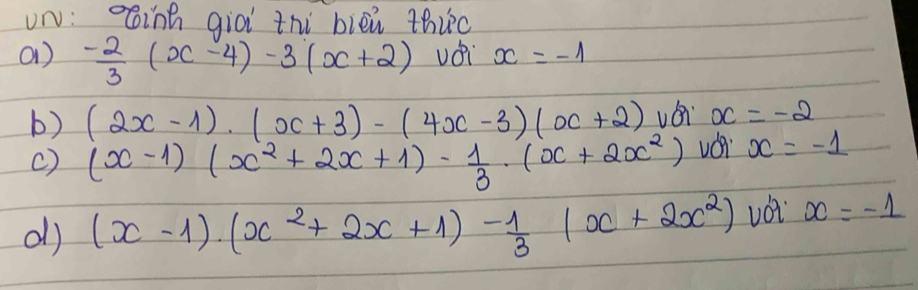 VN: Tính giá trị biểu thức
a) -2/3 (x - 4) - 3(x + 2) với x = -1
b) (2x - 1) . (x + 3) - (4x - 3)(x + 2) với x = -2
c) (x - 1) (x² + 2x + 1) - 1/3 . (x + 2x²) với x = -1
d) (x - 1) . (x² + 2x + 1) - 1/3 (x + 2x²) với x = -1